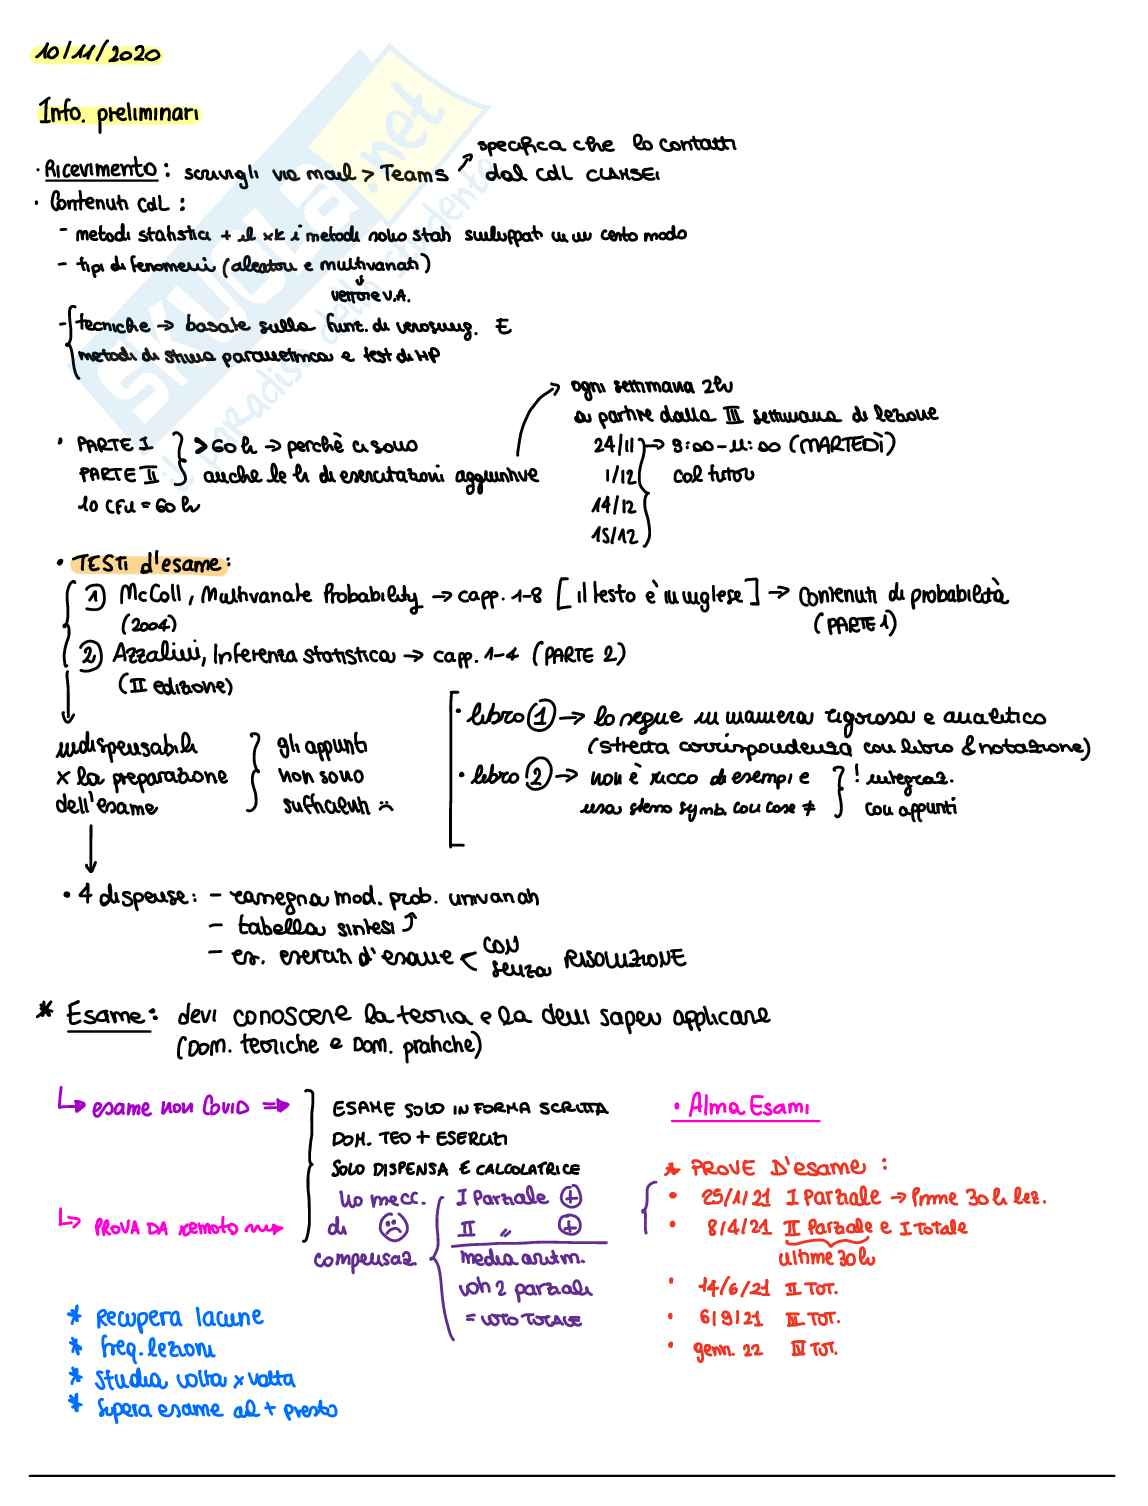 10/11/2020
Info. preliminari
· Ricevimento: scrivigli via mail > Teams ↗ specifica che lo contatti
dal CdL CLAMSEI
· Contenuti CdL :
- metodi statistici + il xk i metodi sono stati sviluppati in un certo modo
- tipi di fenomeni (aleatori e multivariati)
vettore v.A.
- tecniche → basate sulla funz. di verosimig. E
metodi di stima parametrica e test di HP
ogni settimana 2h
a partire dalla III settimana di lezione
· PARTE I } > 60 h → perchè ci sono
PARTE II } anche le h di esercitazioni aggiuntive
10 CFU = 60 h
24/11 → 9:00-11:00 (MARTEDÌ)
1/12 col tutor
14/12
15/12
· TESTI d'esame:
1) McColl, Multivariate Probability → capp. 1-8 [il testo è in inglese] → Contenuti di probabilità
(2004) (PARTE 1)
2) Azzalini, Inferenza statistica → capp. 1-4 (PARTE 2)
(II edizione)
indispensabili
x la preparazione
dell'esame
gli appunti
non sono
sufficienti
· libro 1 → lo segue in maniera rigorosa e analitica
(stretta corrispondenza con libro & notazione)
· libro 2 → non è ricco di esempi e } ! integraz.
usa stesso symb. con cose ≠ } con appunti
· 4 dispense: - rassegna mod. prob. univariati
- tabella sintesi ↑
- es. esercizi d'esame < con
senza RISOLUZIONE
* Esame: devi conoscere la teoria e la devi saper applicare
(Dom. teoriche e Dom. pratiche)
↳ esame non Covid ⇒
ESAME SOLO IN FORMA SCRITTA
DOM. TEO + ESERCIZI
SOLO DISPENSA E CALCOLATRICE
↳ PROVA DA remoto
no mecc.
di ☹
compensaz.
I Parziale +
II " +
media aritm.
voti 2 parziali
= VOTO TOTALE
· Alma Esami
* PROVE D'esame :
· 25/1/21 I Parziale → Prime 30 h lez.
· 8/4/21 II Parziale e I Totale
ultime 30h
· 14/6/21 II TOT.
· 6/9/21 III TOT.
· genn. 22 IV TOT.
* Recupera lacune
* freq. lezioni
* Studia volta x volta
* Supera esame al + presto
SKUOLA.net
il paradiso dello studente